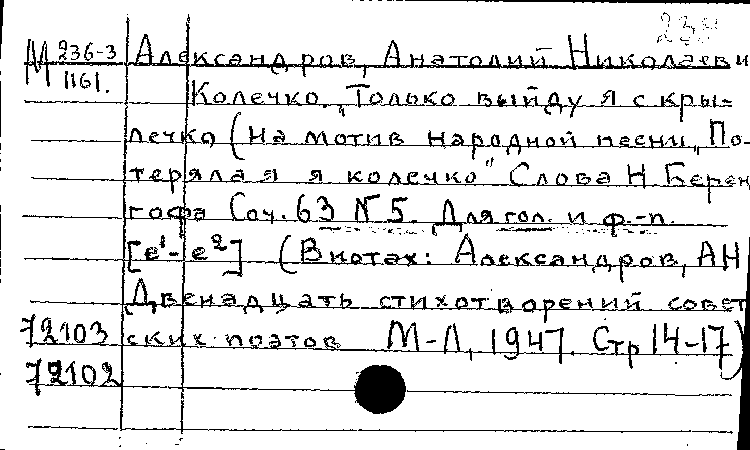 М 236-3
1161.
Александров, Анатолий Николаеви
Колечко „Только выйду я с кры=
лечко (на мотив народной песни „По-
теряла я я колечко" Слова Н Берен
гофа Соч. 63 № 5. Для гол. и ф.-п.
[e¹- e²] (В нотах: Александров, АН
Двенадцать стихотворений совет
72103 ских поэтов М-Л, 1947. Стр 14-17)
72102